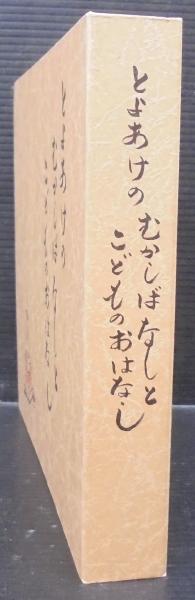 とよあけの
むかしばなしと
こどものおはなし
とよあけの
むかしばなしと
こどものおはなし